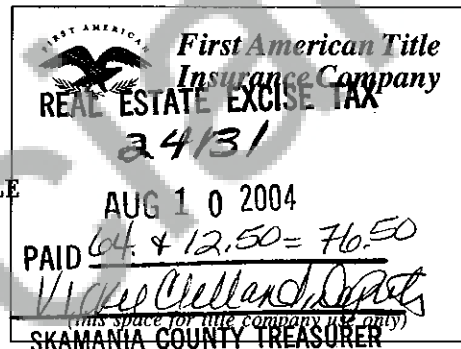 FIRST AMERICAN
First American Title
Insurance Company
REAL ESTATE EXCISE TAX
24131
LE
AUG 10 2004
PAID 64. + 12.50 = 76.50
Vickie Clelland, Deputy
(this space for title company use only)
SKAMANIA COUNTY TREASURER